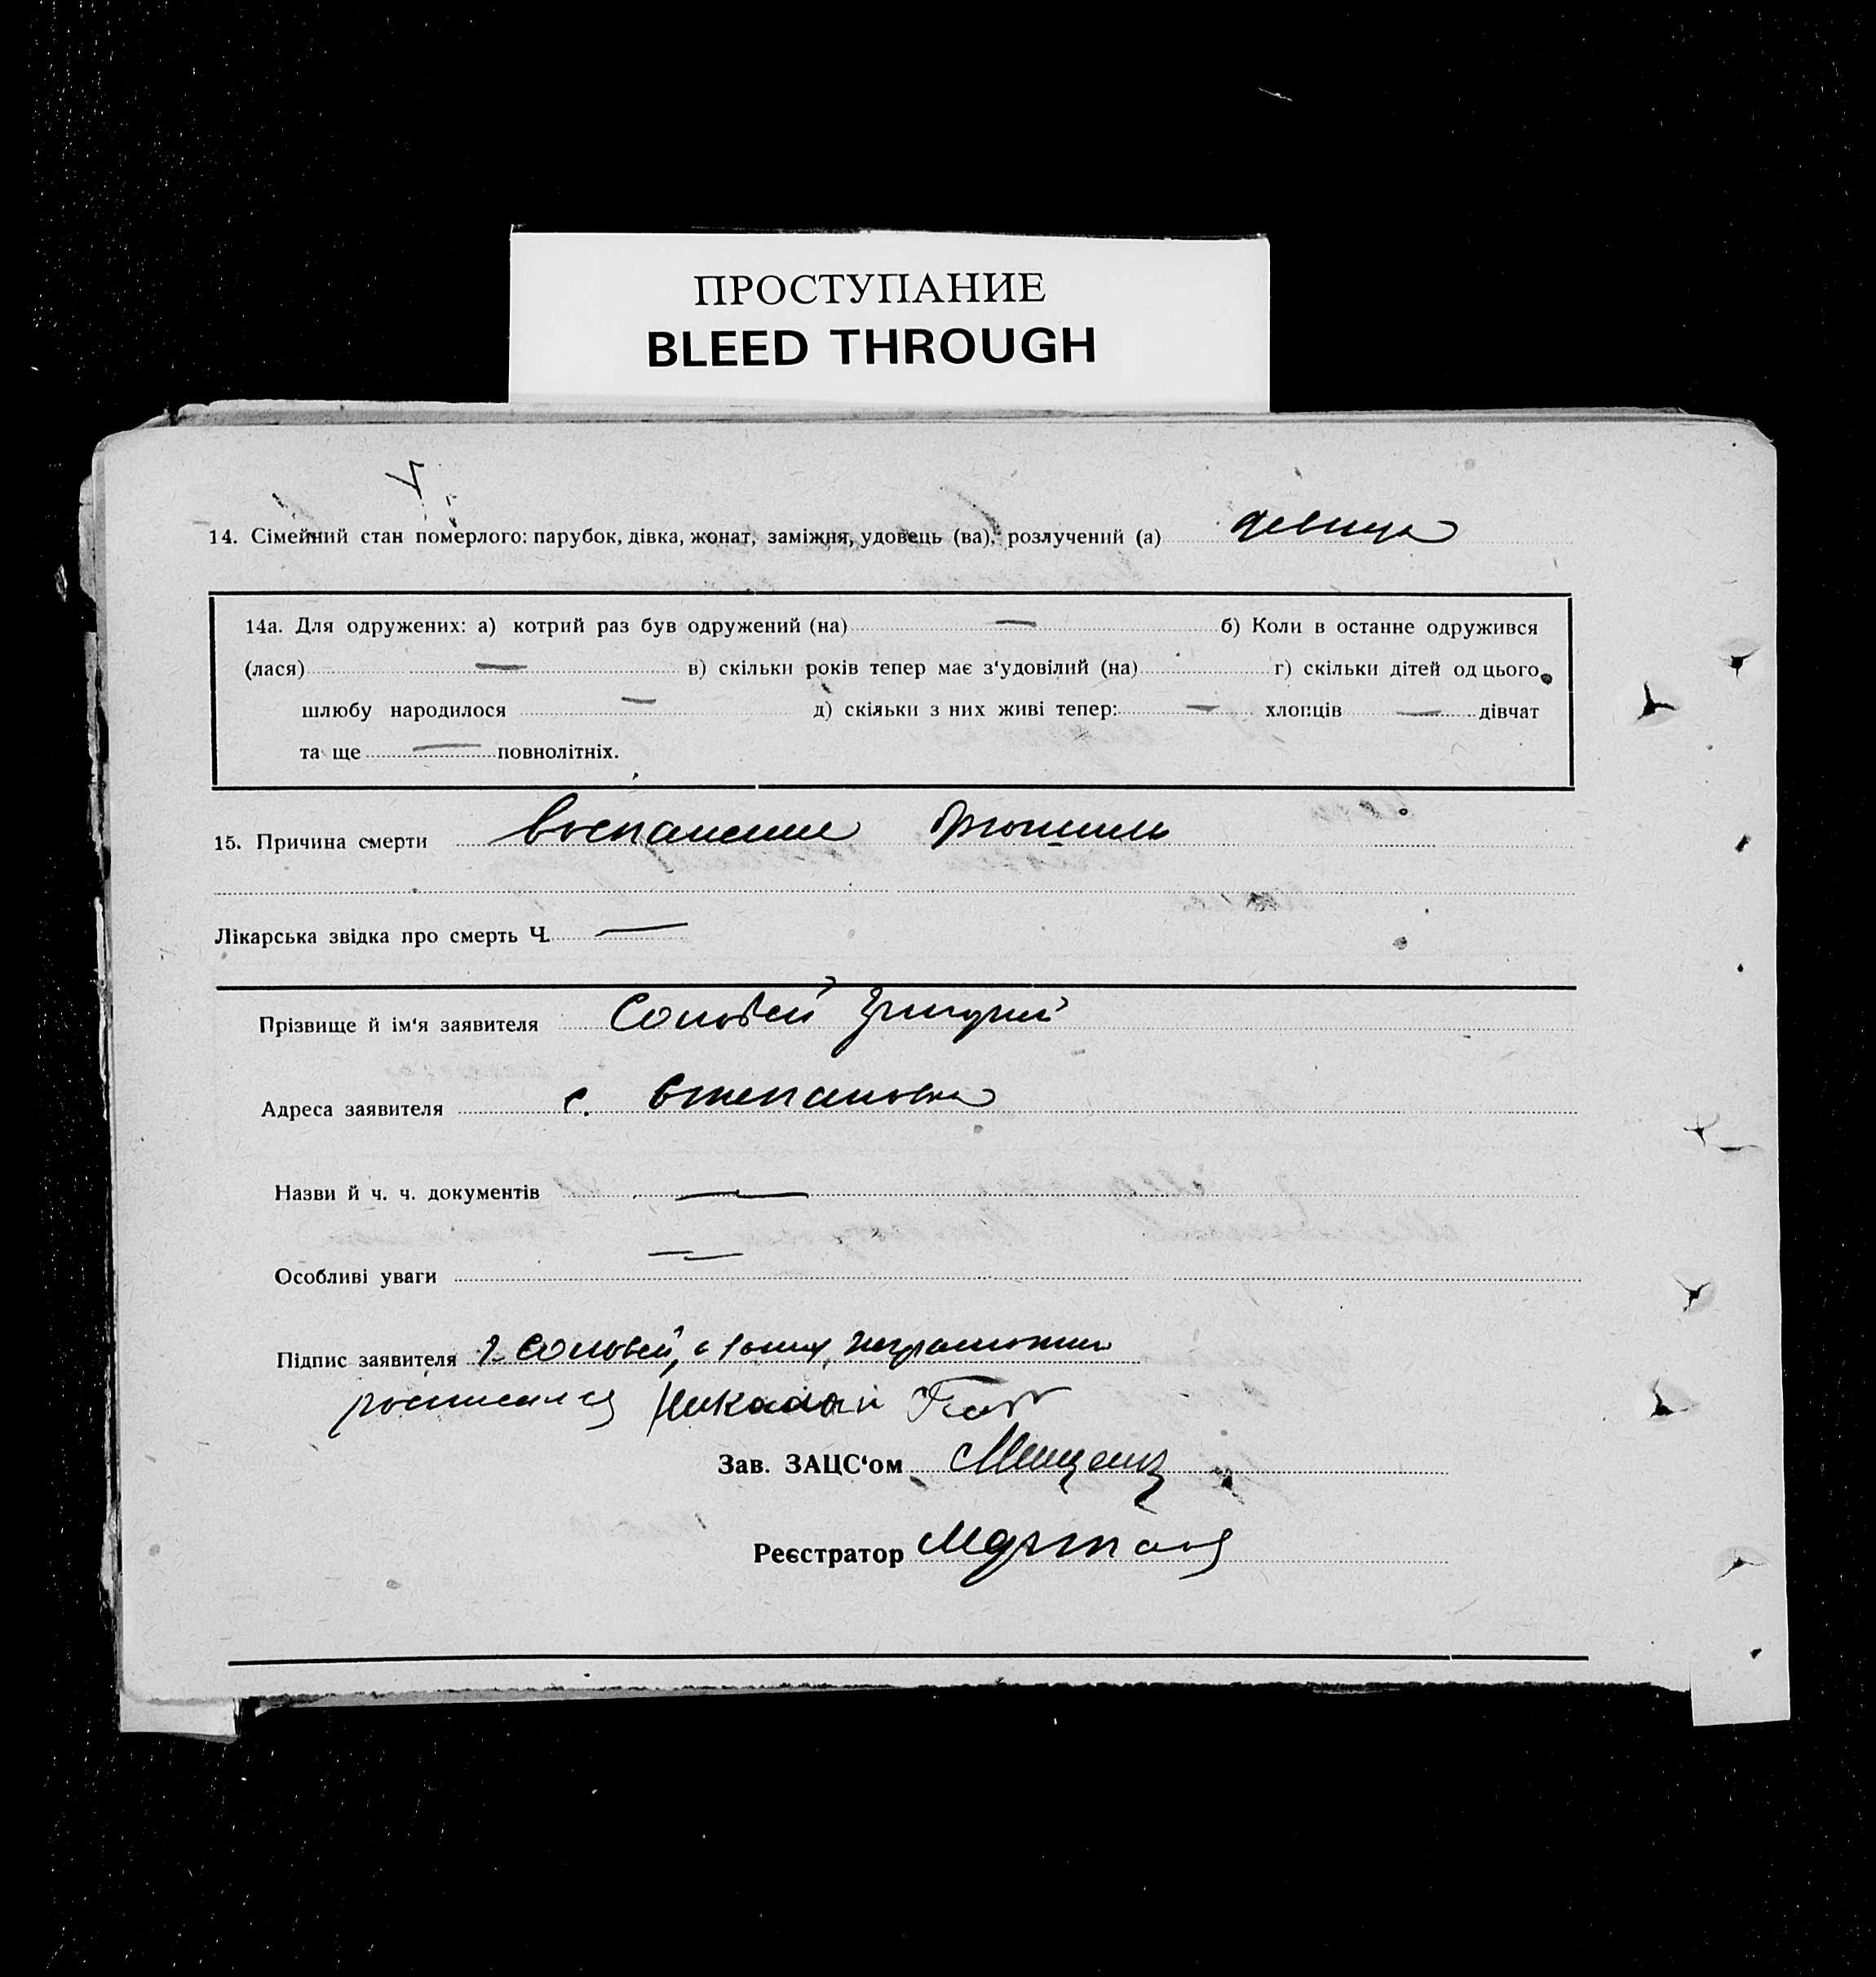 ПРОСТУПАНИЕ
BLEED THROUGH
14. Сімейний стан померлого: парубок, дівка, жонат, заміжня, удовець (ва), розлучений (а) девица
14а. Для одружених: а) котрий раз був одружений (на) — б) Коли в останне одружився
(лася) — в) скільки років тепер має з‘удовілий (на) г) скільки дітей од цього
шлюбу народилося — д) скільки з них живі тепер: — хлопців — дівчат
та ще — повнолітніх.
15. Причина смерти воспаление брюшины
Лікарська звідка про смерть Ч. —
Прізвище й ім‘я заявителя Соловей
Адреса заявителя с. Степановка
Назви й ч. ч. документів —
Особливі уваги —
Підпис заявителя Соловей, неграмотний
росписался Николай
Зав. ЗАЦС‘ом
Реєстратор